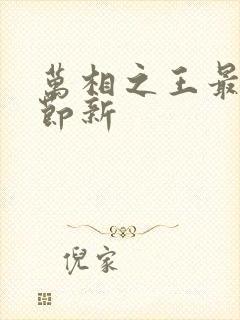 萬相之王最
節新
倪家